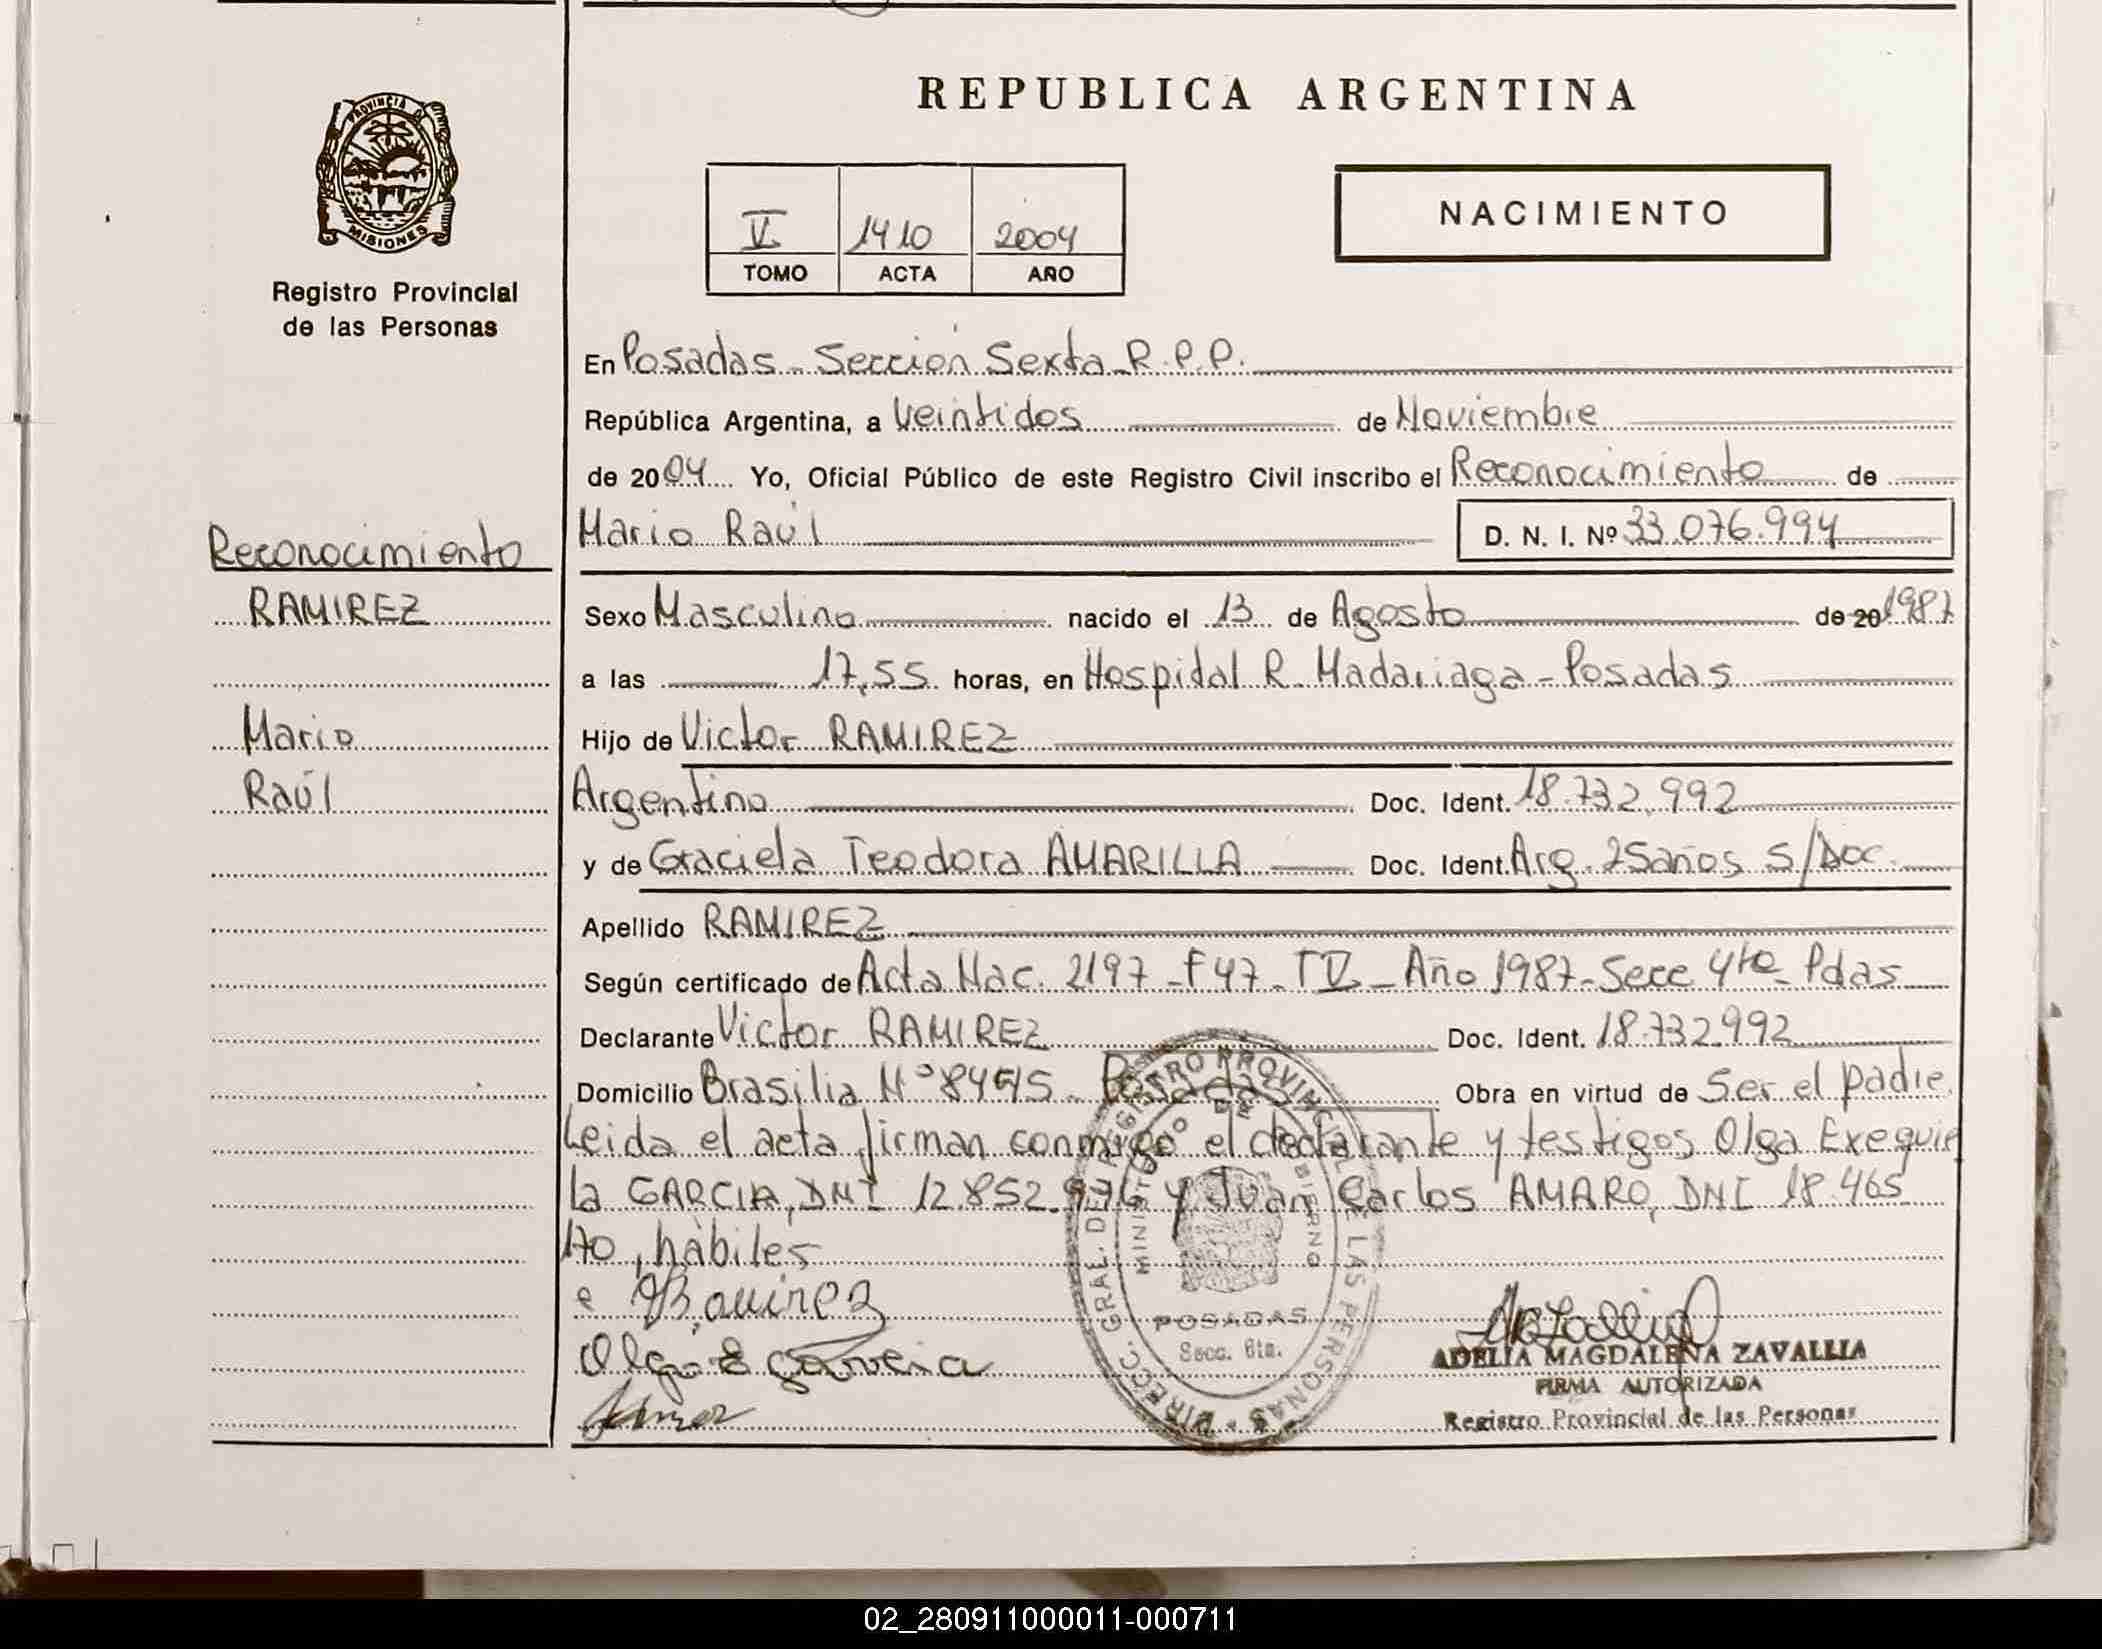 REPUBLICA ARGENTINA
PROVINCIA DE
MISIONES
Registro Provincial
de las Personas
V 1410 2004
TOMO ACTA AÑO
NACIMIENTO
En Posadas - Sección Sexta R.P.P.
República Argentina, a Veintidos de Noviembre
de 2004 Yo, Oficial Público de este Registro Civil inscribo el Reconocimiento de
Mario Raúl D. N. I. Nº 33.076.994
Reconocimiento
RAMIREZ
Mario
Raúl
Sexo Masculino nacido el 13 de Agosto de 20 1987
a las 17,55 horas, en Hospital R. Madariaga - Posadas
Hijo de Victor RAMIREZ
Argentino Doc. Ident. 18.732.992
y de Graciela Teodora AMARILLA Doc. Ident. Arg. 25años s/Doc.
Apellido RAMIREZ
Según certificado de Acta Nac. 2197 - F 47 - T V - Año 1987 - Secc 4ta Pdas
Declarante Victor RAMIREZ Doc. Ident. 18.732.992
Domicilio Brasilia Nº Posadas Obra en virtud de Ser el padre.
Leida el acta firman conmigo el declarante y testigos Olga Exequie
la GARCIA, DNI 12.852. y Juan Carlos AMARO, DNI 18.465
170, hábiles
Ramirez
Olga E
DIRECC. GRAL. DEL REGISTRO PROVINCIAL DE LAS PERSONAS
MINISTERIO DE GOBIERNO
POSADAS
Secc. 6ta.
ADELIA MAGDALENA ZAVALLIA
FIRMA AUTORIZADA
Registro Provincial de las Personas
02_280911000011-000711